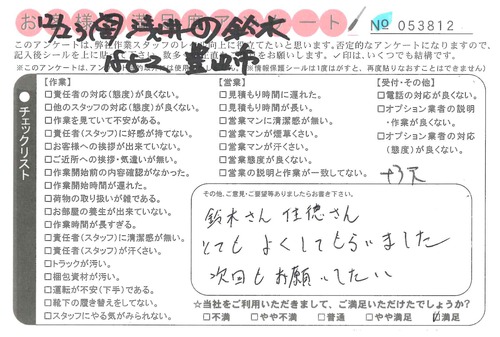 お 様 ート No 053812
12/23 浅井 鈴木
このアンケートは、弊社作業スタッフのレベル向上に役立てたいと思います。否定的なアンケートになりますので、
※このアンケートは、
【作業】
□責任者の対応(態度)が良くない。
□他のスタッフの対応(態度)が良くない。
□作業を見ていて不安がある。
□責任者(スタッフ)に好感が持てない。
□お客様への挨拶が出来ていない。
□ご近所への挨拶・気遣いが無い。
□作業開始前の内容確認がなかった。
□作業開始時間が遅れた。
□荷物の取り扱いが雑である。
□お部屋の養生が出来ていない。
□作業時間が長すぎる。
□責任者(スタッフ)に清潔感が無い。
□責任者(スタッフ)が汗くさい。
□トラックが汚い。
□梱包資材が汚い。
□運転が不安(下手)である。
□靴下の履き替えをしてない。
□スタッフにやる気がみられない。
【営業】
□見積もり時間に遅れた。
□見積もり時間が長い。
□営業マンに清潔感が無い。
□営業マンが煙草くさい。
□営業マンが汗くさい。
□営業態度が良くない。
□営業の説明と作業が一致してない。
【受付・その他】
□電話の対応が良くない。
□オプション業者の説明
・作業が良くない。
□オプション業者の対応
(態度)が良くない。
チェックリスト
その他、ご意見・ご要望等ありましたらお書き下さい。
鈴木さん 佳徳さん
とても よくしてもらいました
次回もお願いしたい
☆当社をご利用いただきまして、ご満足いただけたでしょうか?
□不満 □やや不満 □普通 □やや満足 ☑満足